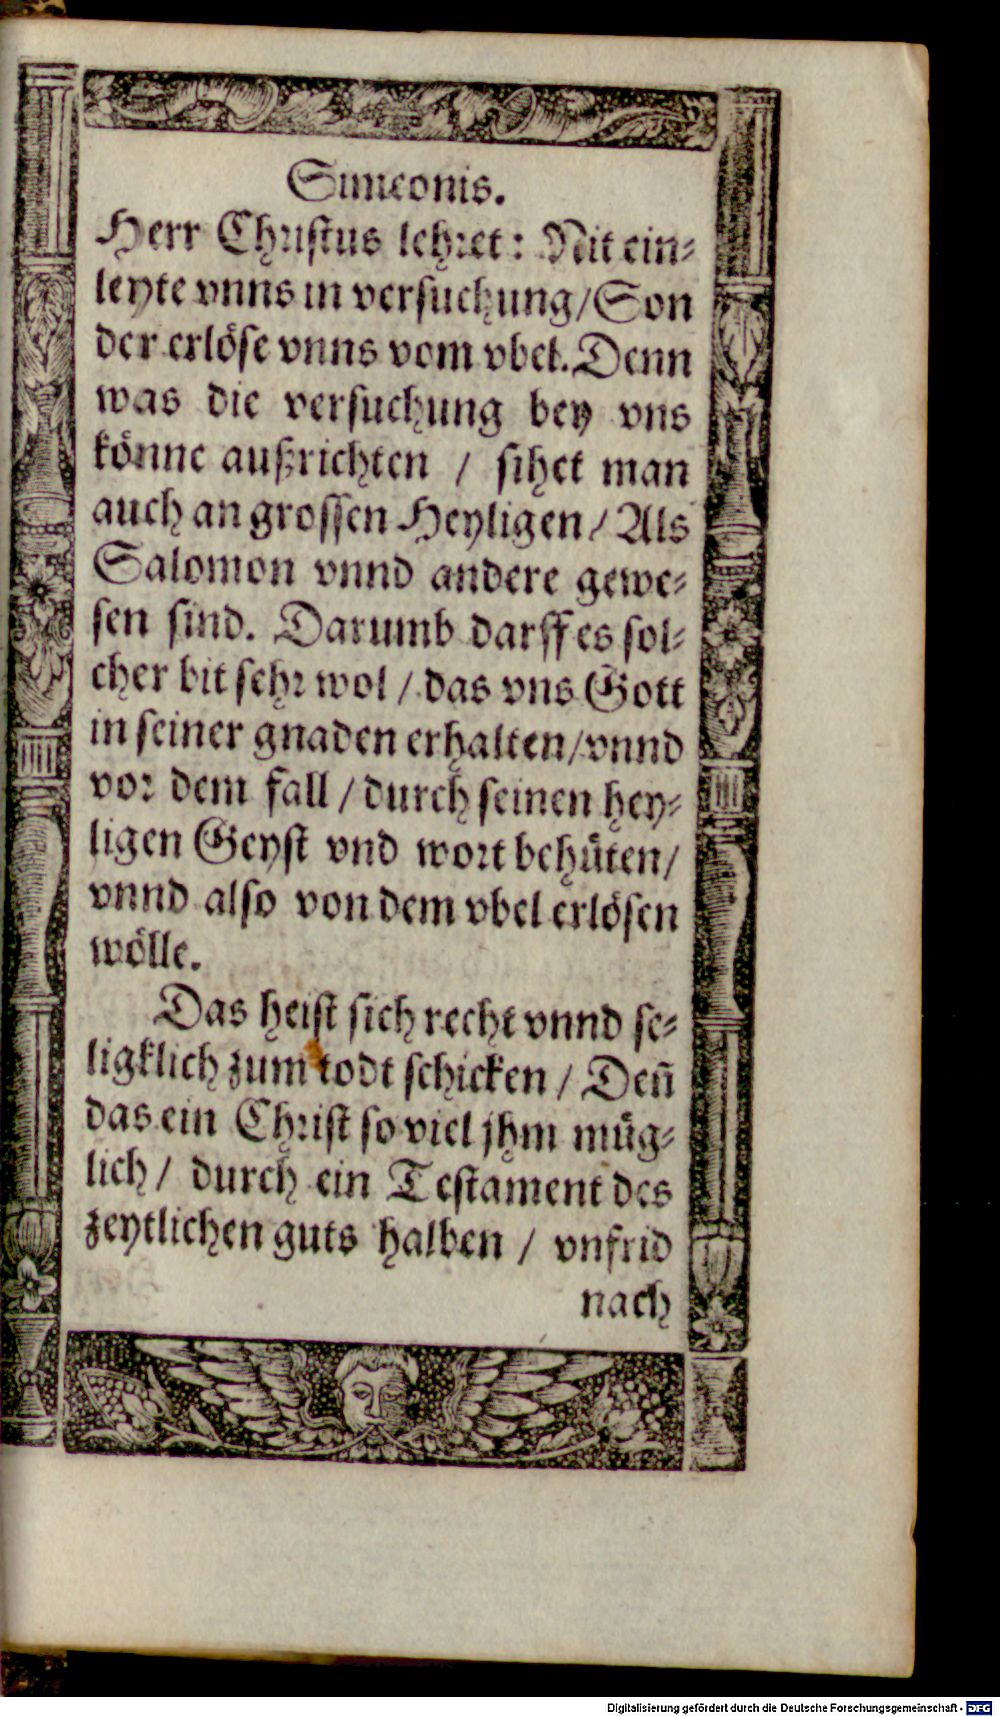 Simeonis.
Herr Christus lehret: Nit ein-
leyte vnns in versuchung/Son
der erlöse vnns vom vbel. Denn
was die versuchung bey vns
könne außrichten / sihet man
auch an grossen Heyligen / Als
Salomon vnnd andere gewe-
sen sind. Darumb darff es sol-
cher bit sehr wol / das vns Gott
in seiner gnaden erhalten/vnnd
vor dem fall / durch seinen hey-
ligen Geyst vnd wort behüten/
vnnd also von dem vbel erlösen
wölle.
Das heist sich recht vnnd se-
ligklich zum todt schicken / Deñ
das ein Christ so viel jhm müg-
lich / durch ein Testament des
zeytlichen guts halben / vnfrid
nach
Digitalisierung gefördert durch die Deutsche Forschungsgemeinschaft - DFG